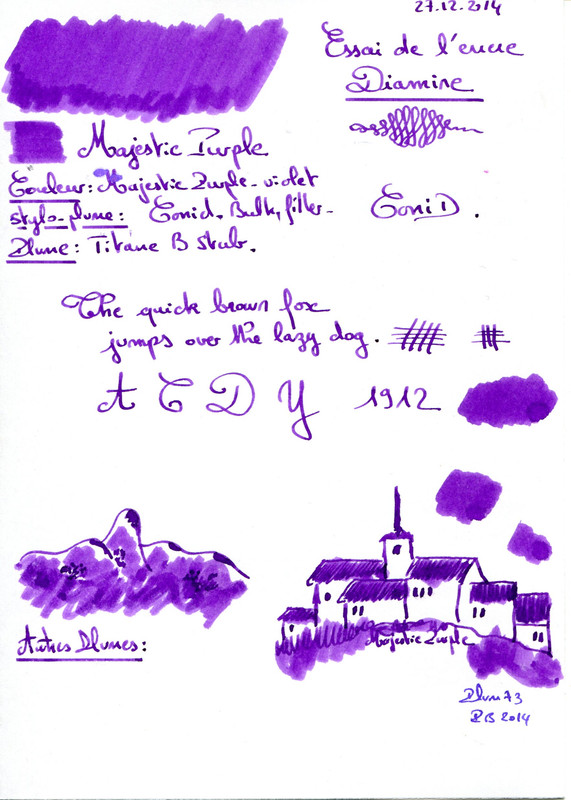 27.12.2014
Essai de l'encre
Diamine
Majestic Purple
Couleur: Majestic Purple - violet
stylo-plume: Conid. Bulk filler -
ConiD.
Plume: Titane B stub.
The quick brown fox
jumps over the lazy dog.
A C D Y 1912
Autres Plumes:
Majestic Purple
Plum73
PB 2014